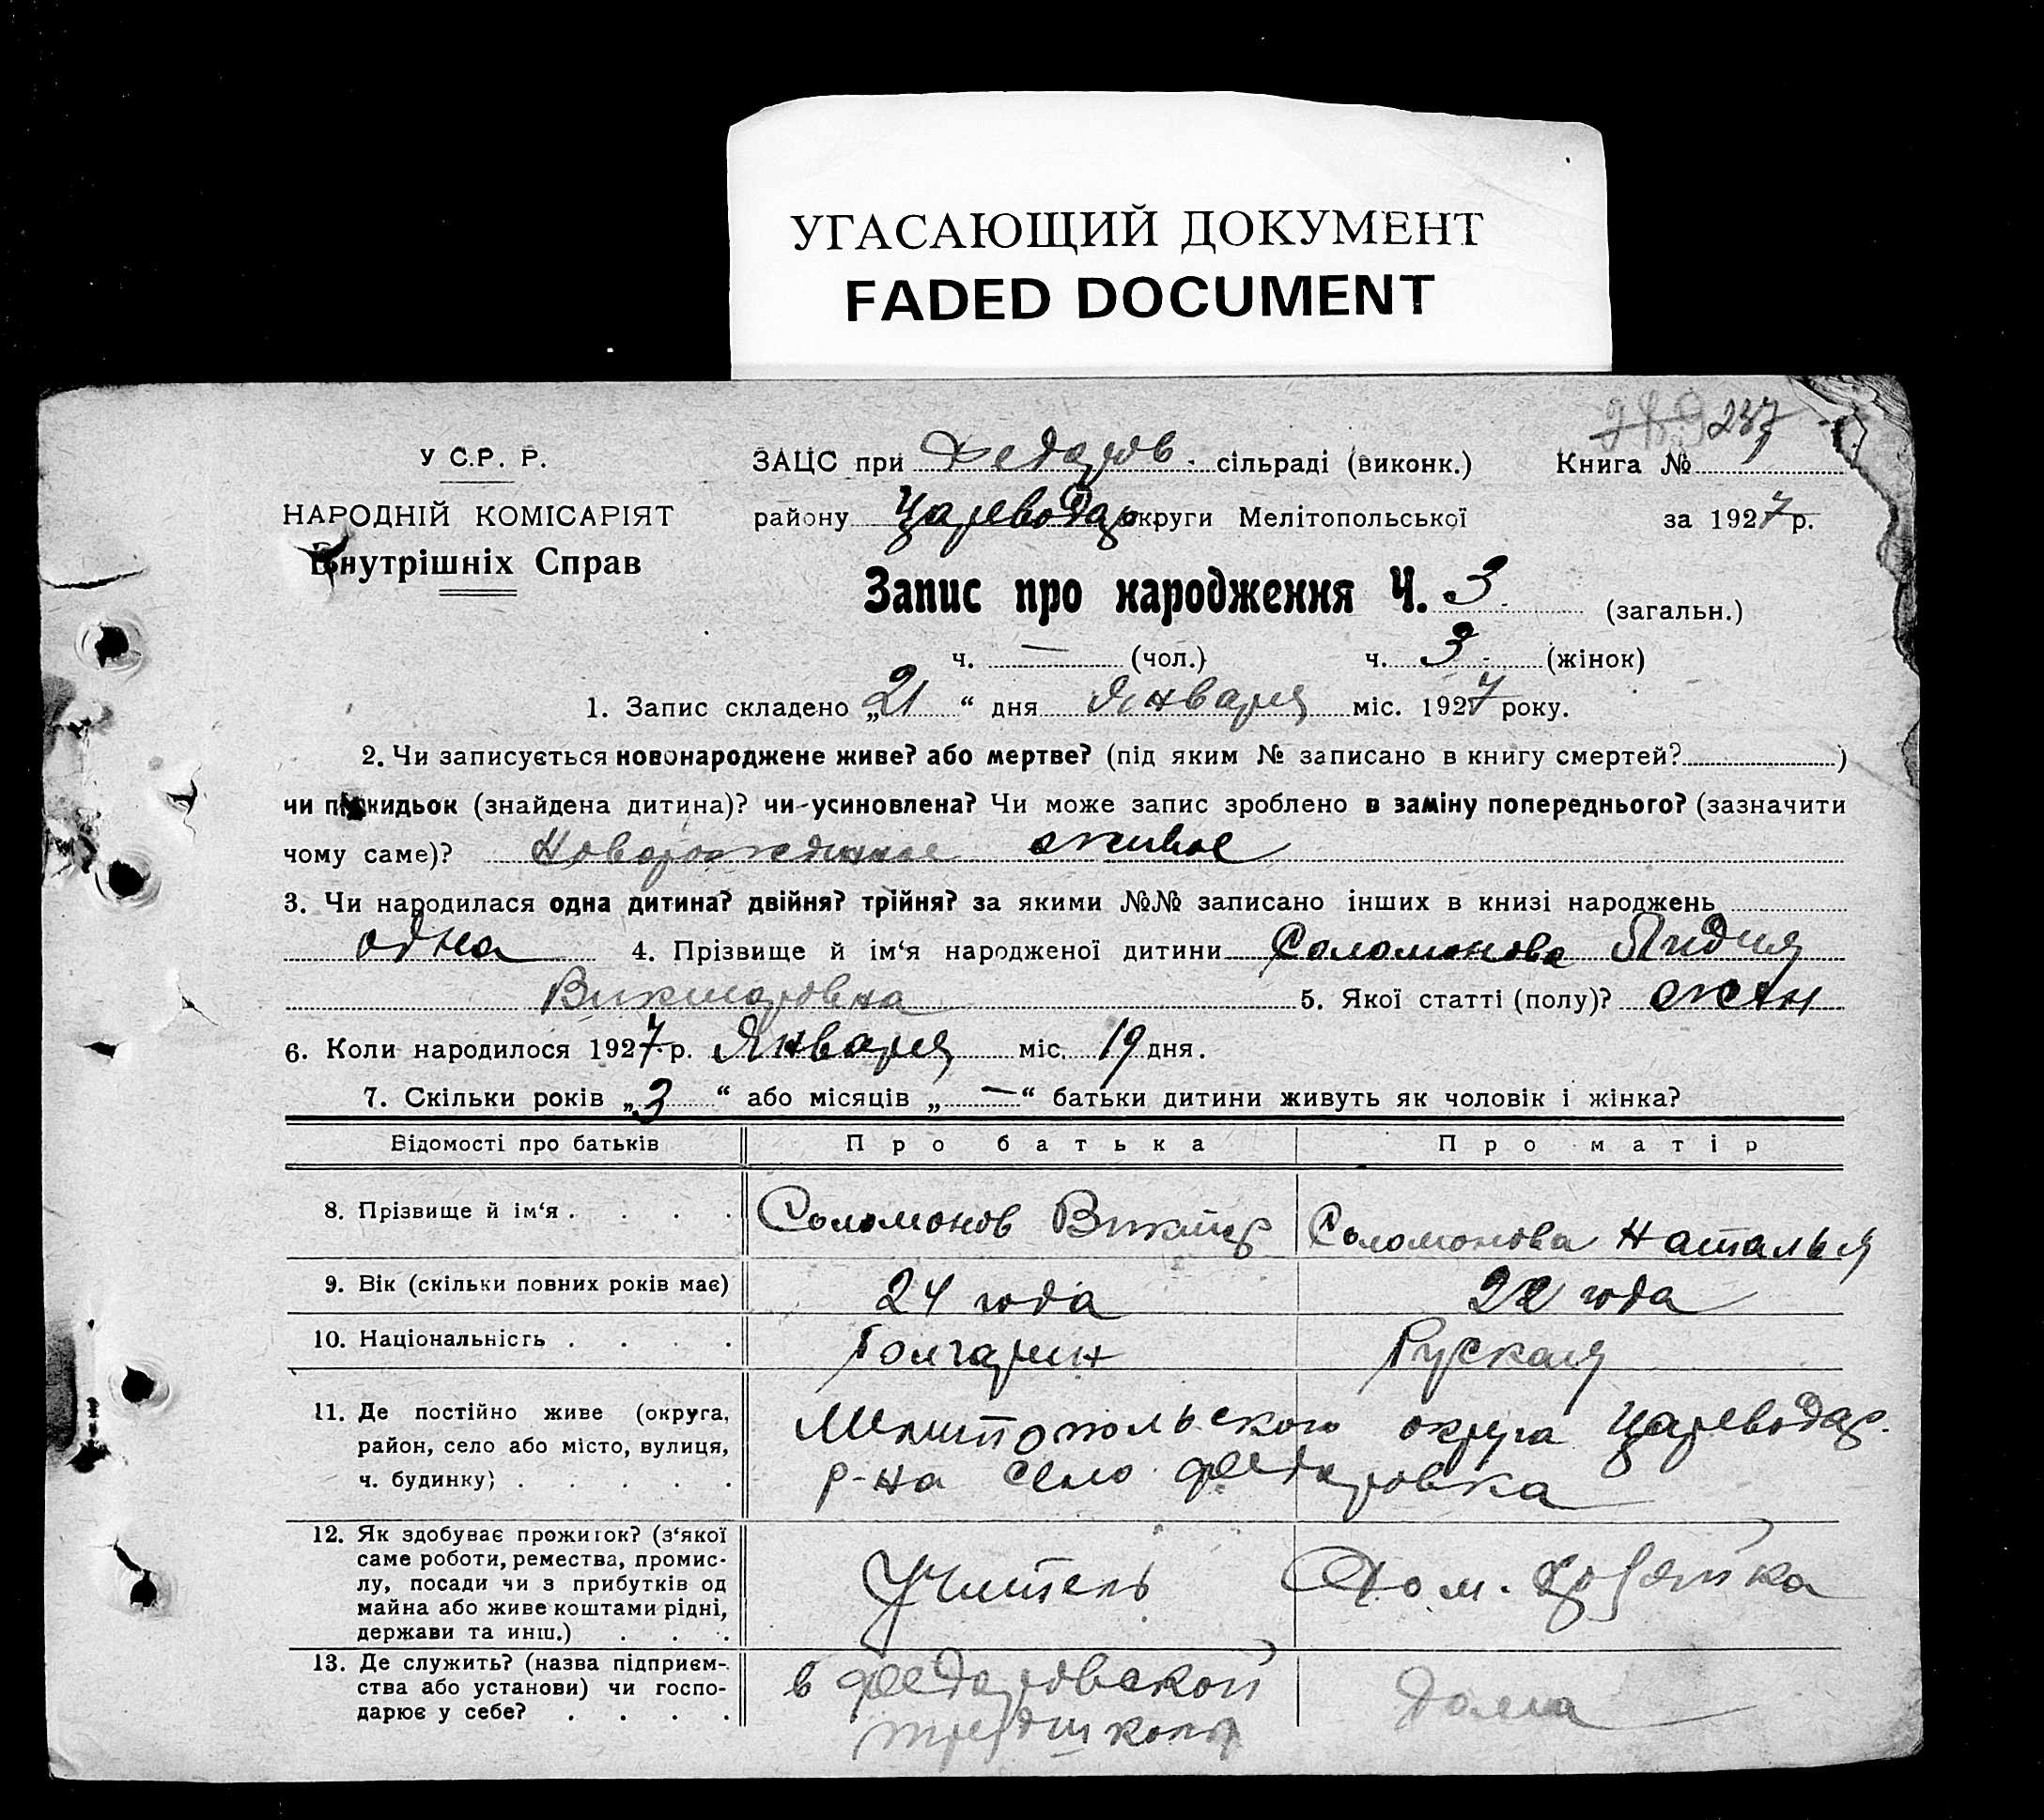 УГАСАЮЩИЙ ДОКУМЕНТ
FADED DOCUMENT
237
У С.Р. Р.
НАРОДНІЙ КОМІСАРІЯТ
Внутрішніх Справ
ЗАЦС при Федаров. сільраді (виконк.) Книга №
району Цареводар округи Мелітопольської за 1927 р.
Запис про народження Ч. 3 (загальн.)
ч. — (чол.) ч. 3 (жінок)
1. Запис складено „21“ дня Января міс. 1927 року.
2. Чи записується новонароджене живе? або мертве? (під яким № записано в книгу смертей? )
чи підкидьок (знайдена дитина)? чи-усиновлена? Чи може запис зроблено в заміну попереднього? (зазначити
чому саме)? Новорожденное живое
3. Чи народилася одна дитина? двійня? трійня? за якими №№ записано інших в книзі народжень
одна 4. Прізвище й ім‘я народженої дитини Соломонова Лидия
Викторовна 5. Якої статті (полу)? жен
6. Коли народилося 1927 р. Января міс. 19 дня.
7. Скільки років „3“ або місяців „—“ батьки дитини живуть як чоловік і жінка?
Відомості про батьків Про батька Про матір
8. Прізвище й ім‘я . . . . Соломонов Виктор Соломонова Наталья
9. Вік (скільки повних років має) 24 года 22 года
10. Національність . . . . Болгарин Руская
11. Де постійно живе (округа,
район, село або місто, вулиця,
ч. будинку) . . . . .
Мелитопольского округа Цареводар.
р-на село Федаровка
12. Як здобуває прожиток? (з‘якої
саме роботи, ремества, промис-
лу, посади чи з прибутків од
майна або живе коштами рідні,
держави та инш.) . . .
Учитель Дом.
13. Де служить? (назва підприєм-
ства або установи) чи госпо-
дарює у себе? . . . .
в Федаровской
трудшколы
Дома